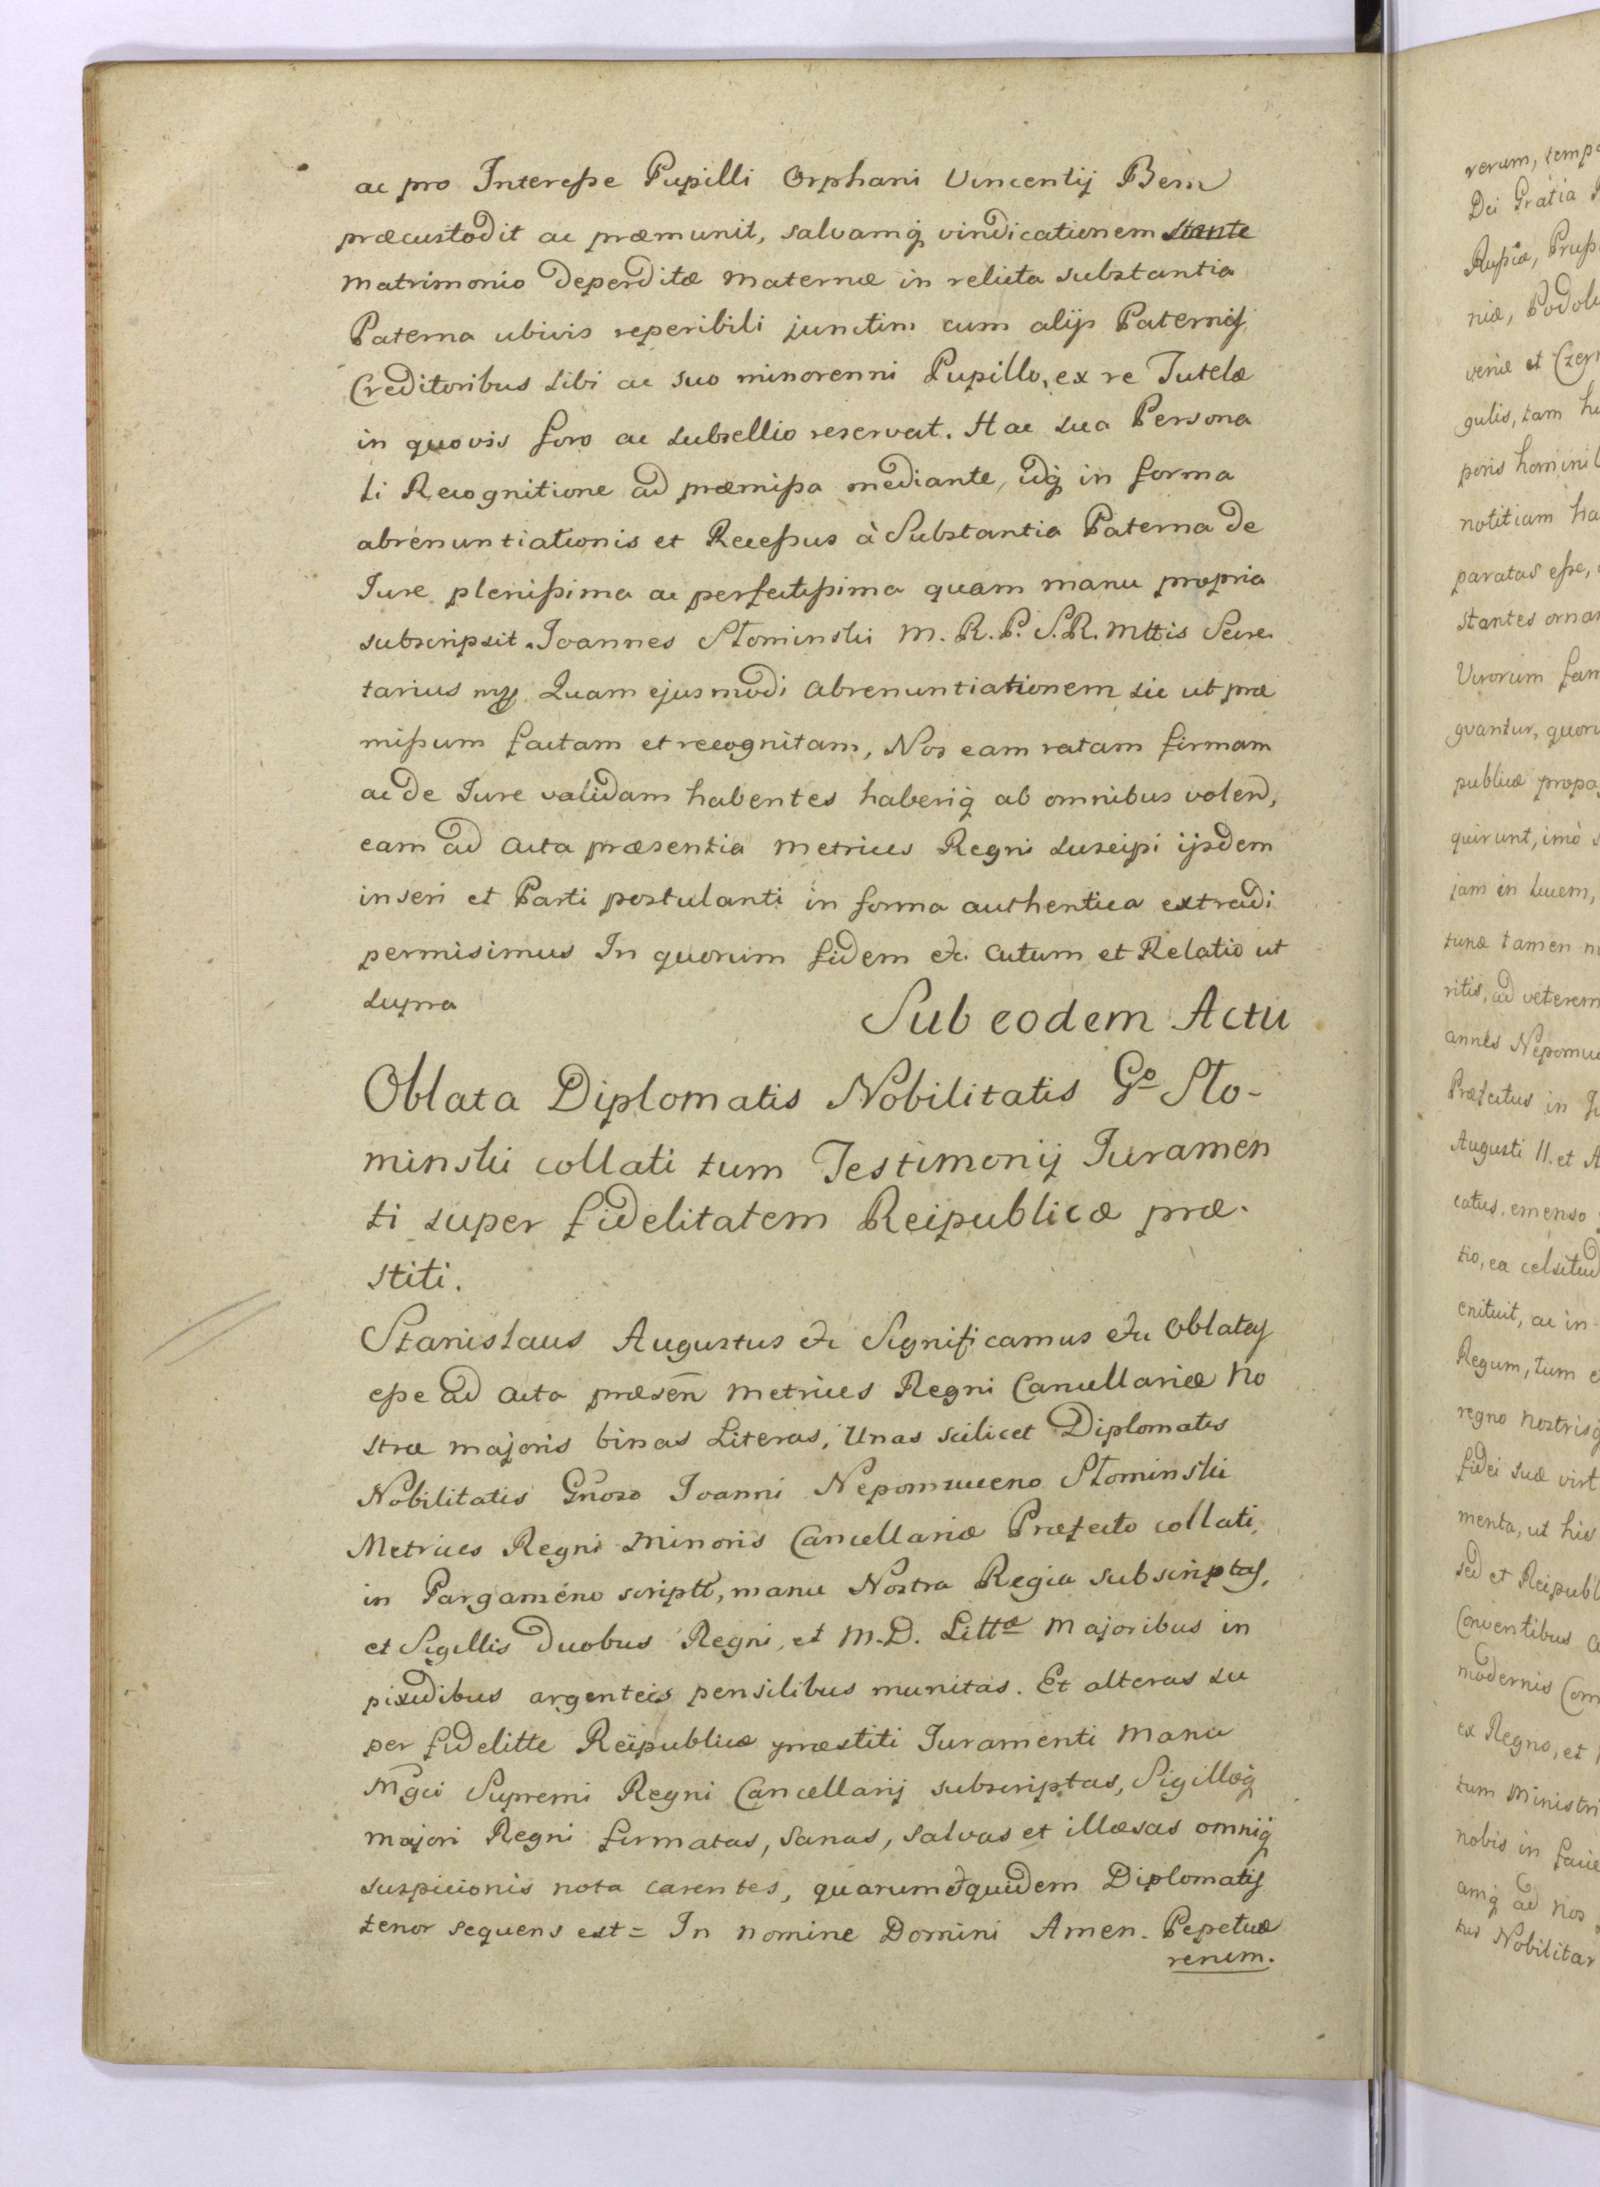 ac pro Interesse Pupilli Orphani Vincentij Bem
præcustodit ac præmunit, salvamq́ vindicationem stante
matrimonio deperditæ Maternæ in relicta substantia
Paterna ubivis reperibili junctim cum alijs Paternis
Creditoribus sibi ac suo minorenni Pupillo, ex re Tutelæ
in quovis foro ac subsellio reservat. Hac sua Persona
li Recognitione ad præmissa mediante, idq́ in forma
abrenuntiationis et Recessus à Substantia Paterna de
Jure plenissima ac perfectissima quam manu propria
subscripsit. Joannes Słominski M. R. P. S. R. Mttis Secre-
tarius mp. Quam ejusmodi abrenuntiationem sic ut præ
missum factam et recognitam, Nos eam ratam firmam
ac de Jure validam habentes haberiq́ ab omnibus volend,
eam ad acta præsentia Metrices Regni suscipi ijsdem
inseri et Parti postulanti in forma authentica extradi
permisimus In quorum fidem &c. Actum et Relatio ut
supra
Sub eodem Actu
Oblata Diplomatis Nobilitatis Go Sło-
minski collati tum Testimonij Juramen
ti super fidelitatem Reipublicæ præ-
stiti.
Stanislaus Augustus &c Significamus &c Oblatas
esse ad acta præsen̄ Metrices Regni Cancellariæ No
stræ majoris binas Literas, Unas scilicet Diplomatis
Nobilitatis Gnoso Joanni Nepomuceno Słominski
Metrices Regni Minoris Cancellariæ Præfecto collati,
in Pargameno scriptt, manu Nostra Regia subscriptas,
et Sigillis duobus Regni, et M. D. Littæ Majoribus in
pixidibus argenteis pensilibus munitas. Et alteras su
per fidelitte Reipublicæ præstiti Juramenti manu
Mgci Supremi Regni Cancellarij subscriptas, Sigilloq́
majori Regni firmatas, sanas, salvas et illæsas omniq́
suspicionis nota carentes, quarum equidem Diplomatis
tenor sequens est = In nomine Domini Amen. Pepetuæ
rerum.
rerum, temp
Dei Gratia
Russiæ, Pruss
niæ, Podol
veriæ et Czer
gulis, tam
peris homini
notitiam ha
paratas esse,
stantes orna
Virorum fam
guantur, quor
publicæ propa
quirunt, imò
jam in lucem,
tunæ tamen
ritis, ad veterem
annes Nepomu
Præfectus in
Augusti II. et A
catus, emenso
tio, ea celsitud
enituit, ac in
Regum, tum
regno nostrisq́
fidei suæ virt
menta, ut his
sed et Reipubl
Conventibus
modernis Com
ex Regno, et
tum Ministri
nobis in facie
amq́ ad nos
tus Nobilitar